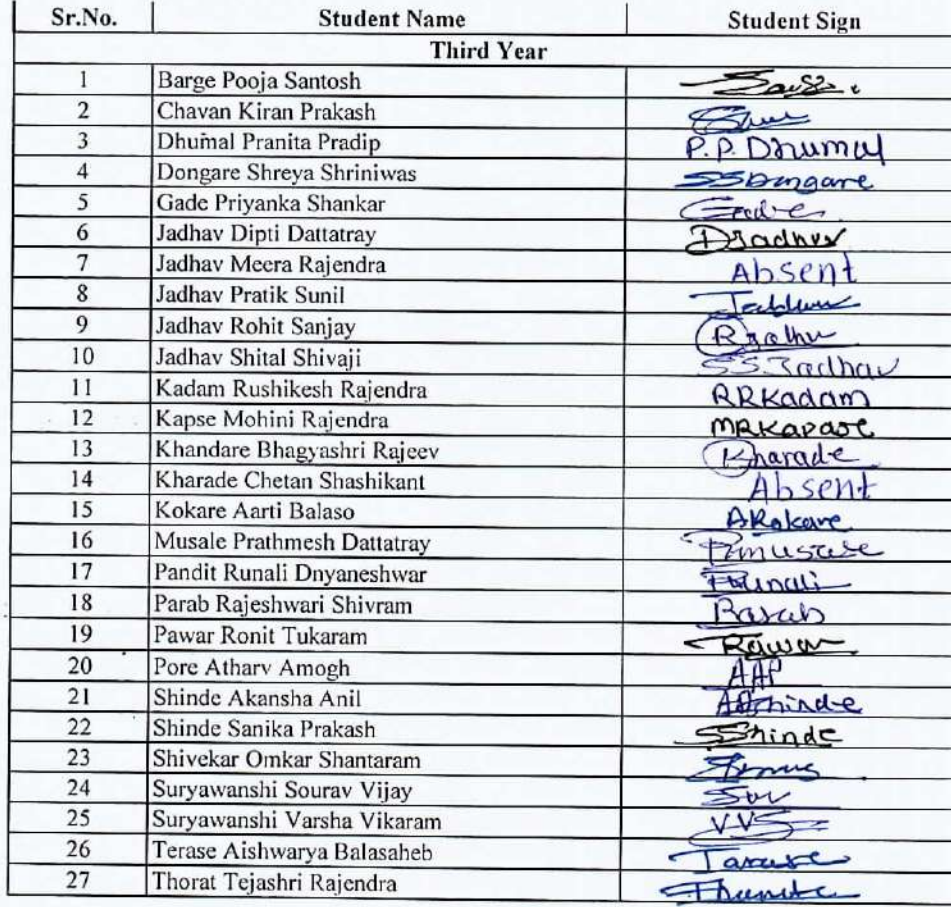 Sr.No. Student Name Student Sign
Third Year
1 Barge Pooja Santosh
2 Chavan Kiran Prakash
3 Dhumal Pranita Pradip P.P. Dhumal
4 Dongare Shreya Shriniwas SSDongare
5 Gade Priyanka Shankar Gade
6 Jadhav Dipti Dattatray DJadhav
7 Jadhav Meera Rajendra Absent
8 Jadhav Pratik Sunil
9 Jadhav Rohit Sanjay
10 Jadhav Shital Shivaji S S Jadhav
11 Kadam Rushikesh Rajendra RRKadam
12 Kapse Mohini Rajendra
13 Khandare Bhagyashri Rajeev Kharade
14 Kharade Chetan Shashikant Absent
15 Kokare Aarti Balaso
16 Musale Prathmesh Dattatray
17 Pandit Runali Dnyaneshwar
18 Parab Rajeshwari Shivram
19 Pawar Ronit Tukaram
20 Pore Atharv Amogh AAP
21 Shinde Akansha Anil AAShinde
22 Shinde Sanika Prakash SShinde
23 Shivekar Omkar Shantaram
24 Suryawanshi Sourav Vijay
25 Suryawanshi Varsha Vikaram VVS
26 Terase Aishwarya Balasaheb
27 Thorat Tejashri Rajendra